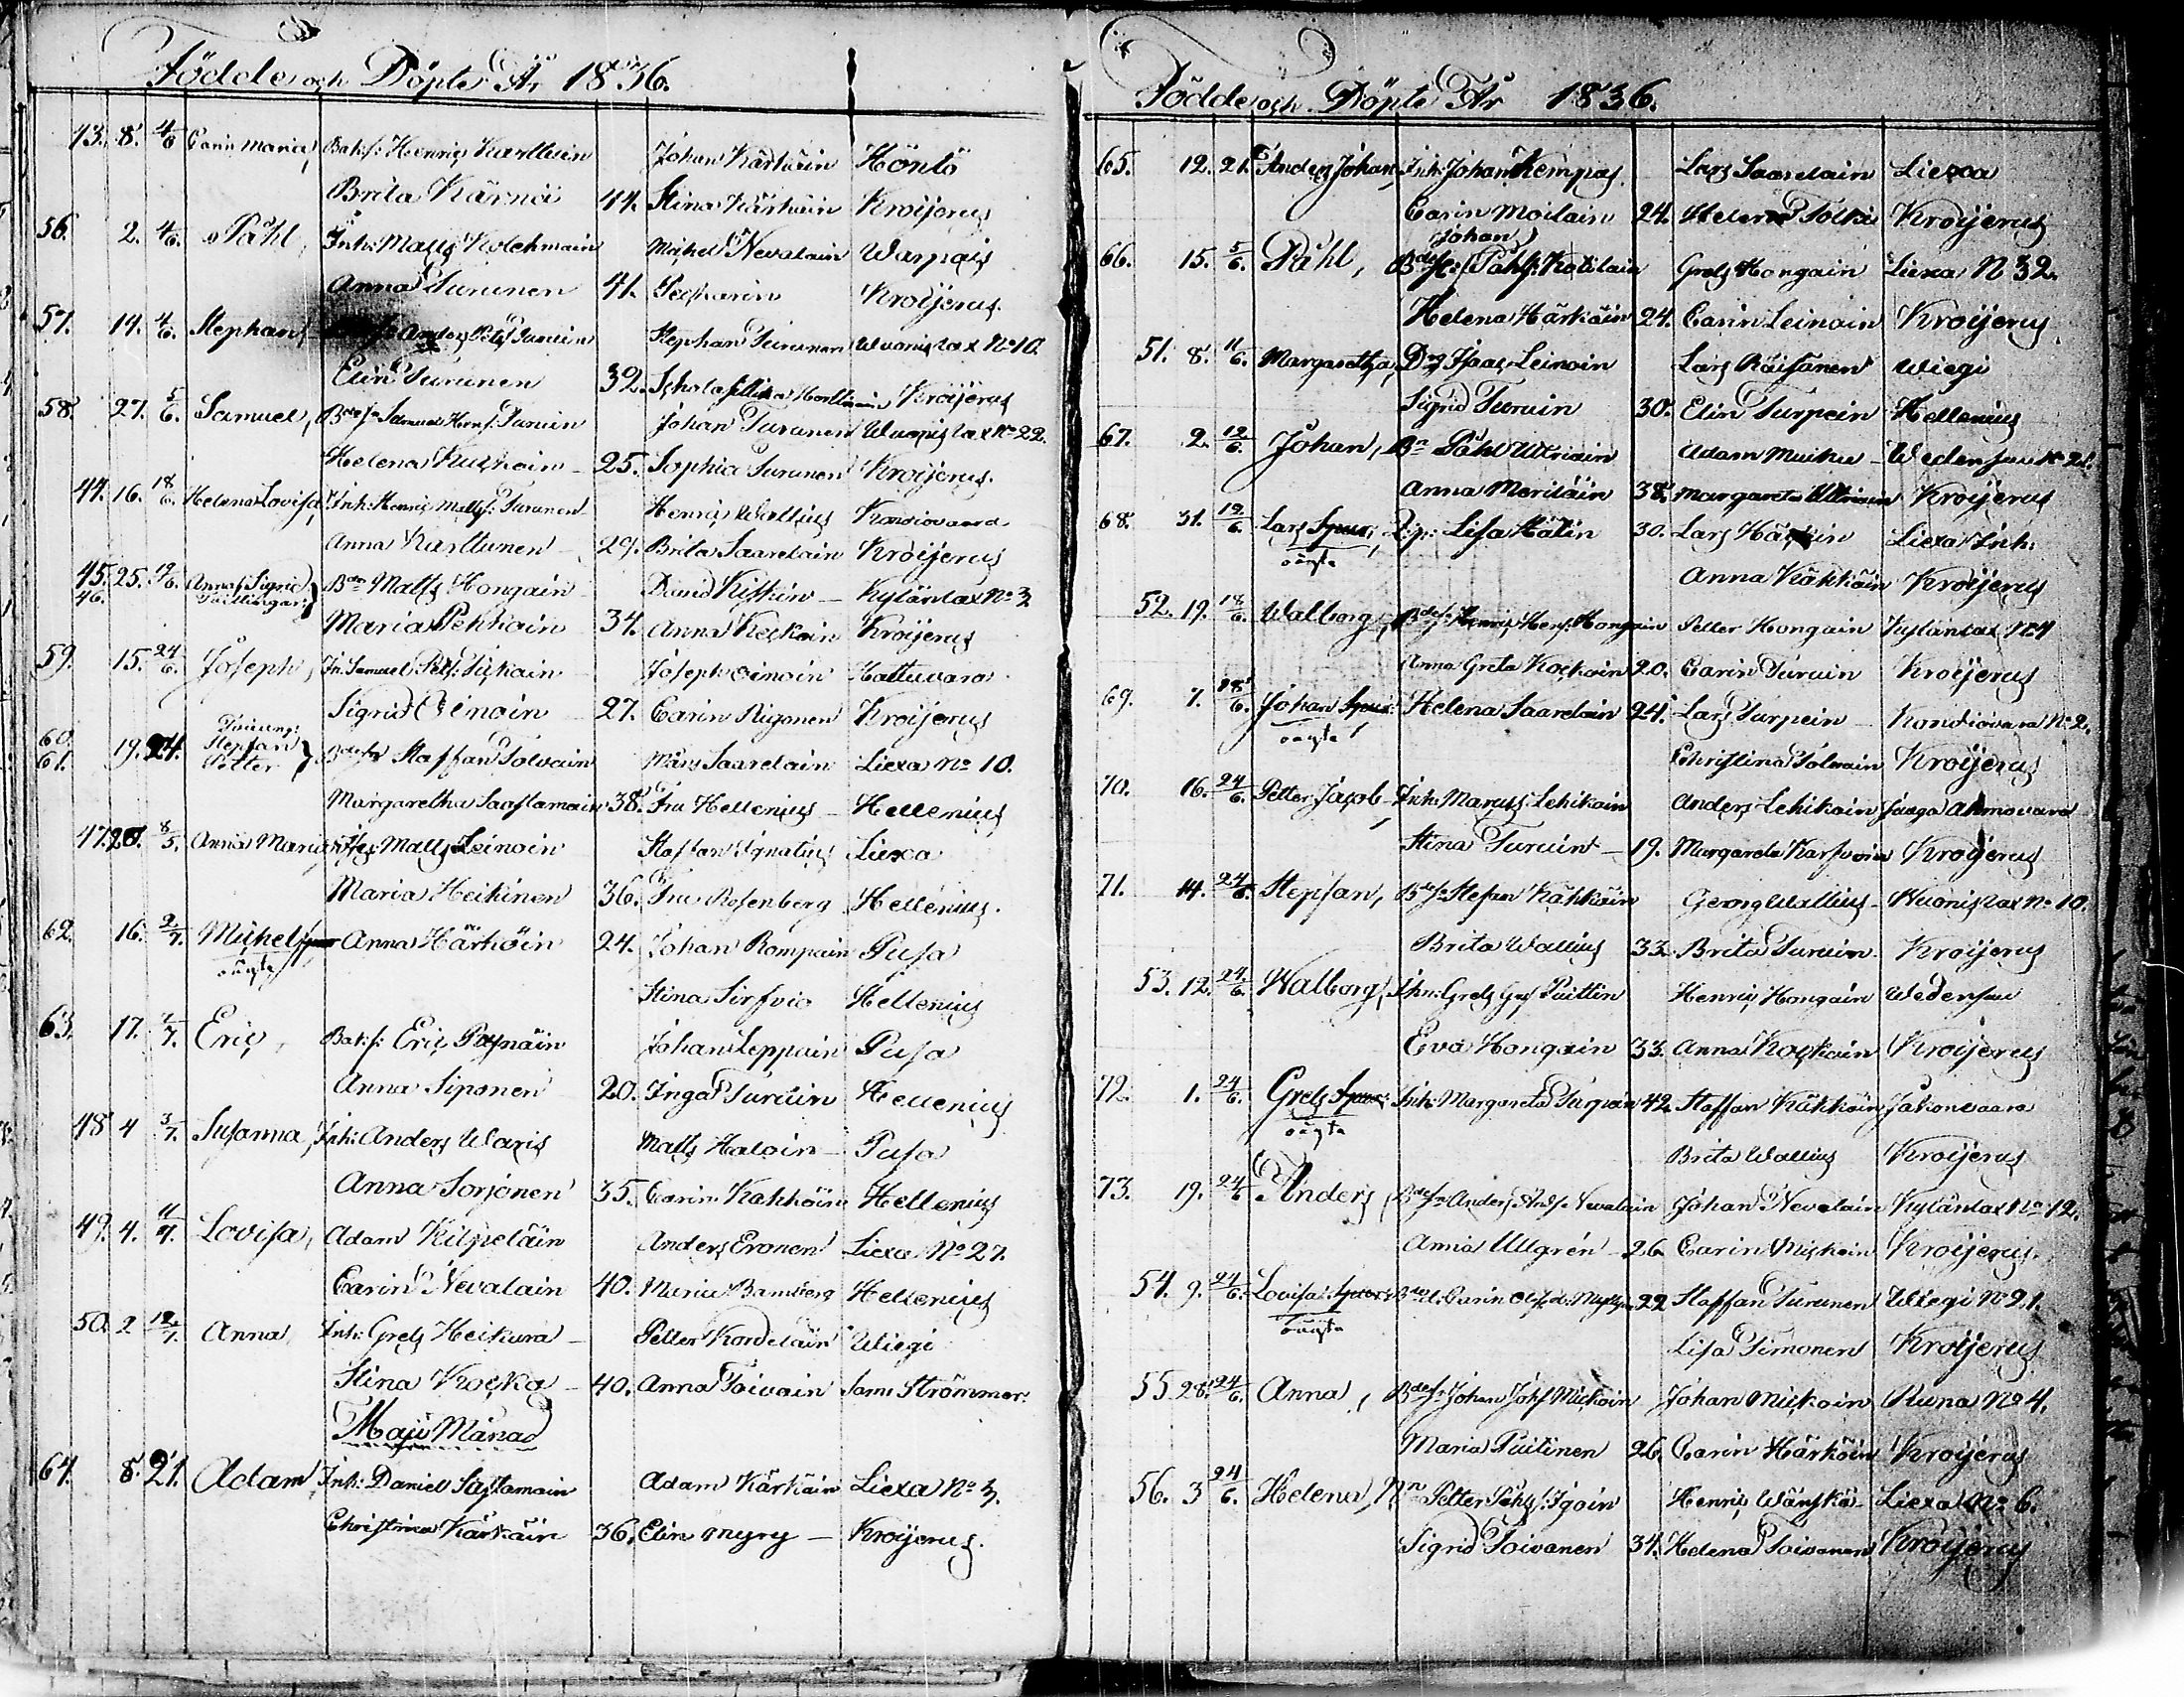 Födde och Döpte År 1836.
43. 8. 4/6 Carin Maria, Bak:s: Henric Karttuin Johan Kärkäin Höntö
Brita Kärnä 44. Stina Kärkäin Kroijerus
56. 2. 4/6. Påhl, Inh: Matts Kolehmain Michel Nevalain Warpais
Anna Turunen 41. Kroijerus.
57. 14. 4/6. Stephan, Anders Turuin Stephan Turunen Wuonislax No 10.
Elin Turunen 32. Kroijerus
58. 27. 5/6. Samuel, Bdes:n Samuel Turuin Johan Turunen Wuonislax No 22.
Helena Kuskoin 25. Sophia Turunen Kroijerus.
44. 16. 18/6. Helena Lovisa, Inh: Henric Matts: Turunen Henric Wallius Kondiovaara
Anna Karttunen 29. Brita Saarelain Kroijerus
45. 25. 19/6. Anna, Sigrid Bdn Matts Hongain David Kiskin Kylänlax No 3
46. Tvillingar
Maria Pehkoin 34. Anna Keckoin Kroijerus
59. 15. 24/6. Joseph, In: Samuel Pets: Joseph Oinoin Hattuvara
Sigrid Oinoin 27. Carin Rigonen Kroijerus
60. 19. 24. Stephan Bdes:n Staffan Tolvain Måns Saarelain Liexa No 10.
61. Petter
Margaretha Saastamoin 38. Fru Hellenius Hellenius
47. 20. 8/5. Anna Maria, Matts Leinoin Staffan Ignatius Liexa
Maria Heikinen 36. Fru Rosenberg Hellenius.
62. 16. 2/7. Michel Spur: Anna Härköin 24. Johan Rompain Pusa
oägta
Stina Sirfvio Hellenius
63. 17. 2/7. Eric, Bak:s: Eric Johan Leppain Pusa
Anna Siponen 20. Inga Turuin Hellenius
48 4 3/7. Susanna, Inh: Anders Waris Matts Haloin Pusa
Anna Sorjonen 35. Carin Kakköin Hellenius
49. 4. 11/7. Lovisa, Adam Kilpeläin Anders Eronen Liexa No 27.
Carin Nevalain 40. Maria Bamberg Hellenius
50. 2 12/7. Anna, Inh: Grels Heikura Petter Kordelain Wiegi
Stina Kocko 40. Anna Toivain Sam: Strömmer.
Maji Månad
64. 8. 21. Adam, Inh: Daniel Sastamoin Adam Kärkäin Liexa No 3.
Christina Kärkäin 36. Elin Myry Kroijerus.
Födde och Döpte År 1836.
65. 12. 21. Anders Johan, Inh: Johan Kempas Lars Saarelain Liexa
Carin Moilain 24. Helena Tolka Kroijerus
Johan
66. 15. 5/6. Påhl, Bdes:n Påhls: Kotilain Grels Hongain Liexa No 32.
Helena Härköin 24. Carin Leinoin Kroijerus
51. 8. 11/6. Margaretha, Dr: Isaac Leinoin Lars Räisänen Wiegi
Sigrid Turuin 30. Elin Turpein Hellenius
67. 2. 12/6. Johan, Bn Påhl Utriain Adam Muiku Wedensuu No 21.
Anna Meriläin 38. Margareta Utriain Kroijerus
68. 31. 12/6. Lars Spur:, Lisa Hälin 30. Lars Liexa Inh:
oägta
Anna Käkköin Kroijerus
52. 19. 18/6. Walborg, Bdes: Henric Hens: Hongain Petter Hongain Kylänlax No 4
Anna Greta Kockoin 20. Carin Turuin Kroijerus
69. 7. 18/6. Johan Spur: Helena Saarelain 24. Lars Turpein Kondiovara No 2.
oägta
Christina Tolvain Kroijerus
70. 16. 24/6. Petter Jacob, Inh: Marcus Lehikoin Anders Lehikoin Jaaga Ahmovara
Stina Turuin 19. Margareta Karfvoin Kroijerus
71. 14. 24/6. Stephan, Bdes:n Stefan Käkköin Georg Wallius Wuonislax No 10.
Brita Wallius 33. Brita Turuin Kroijerus
53. 12. 24/6. Walborg, Inh: Grels Grs: Puitlin Henric Hongain Wedensuu
Eva Hongain 33. Anna Kockoin Kroijerus
72. 1. 24/6. Grels Spur: Inh: Margareta Turpein 42. Staffan Käkköin Jakonvaara
oägta
Brita Wallius Kroijerus
73. 19. 24/6 Anders, Bdes:n Anders Ands: Nevalain Johan Nevalain Kylänlax No 12.
Anna Ullgrén 26. Carin Miskoin Kroijerus.
54. 9. 24/6. Lovisa Spur: Carin 22 Staffan Turunen Wiegi No 21.
oägta
Lisa Timonen Kroijerus
55 28. 24/6. Anna, Bdes:n Johan Johs: Mickoin Johan Mickoin Runa No 4.
Maria Puitinen 26. Carin Härköin Kroijerus
56. 3 24/6. Helena, Petter Påhls: Igoin Henric Wänskä Liexa No 6.
Sigrid Toivanen 34. Helena Toivanen Kroijerus